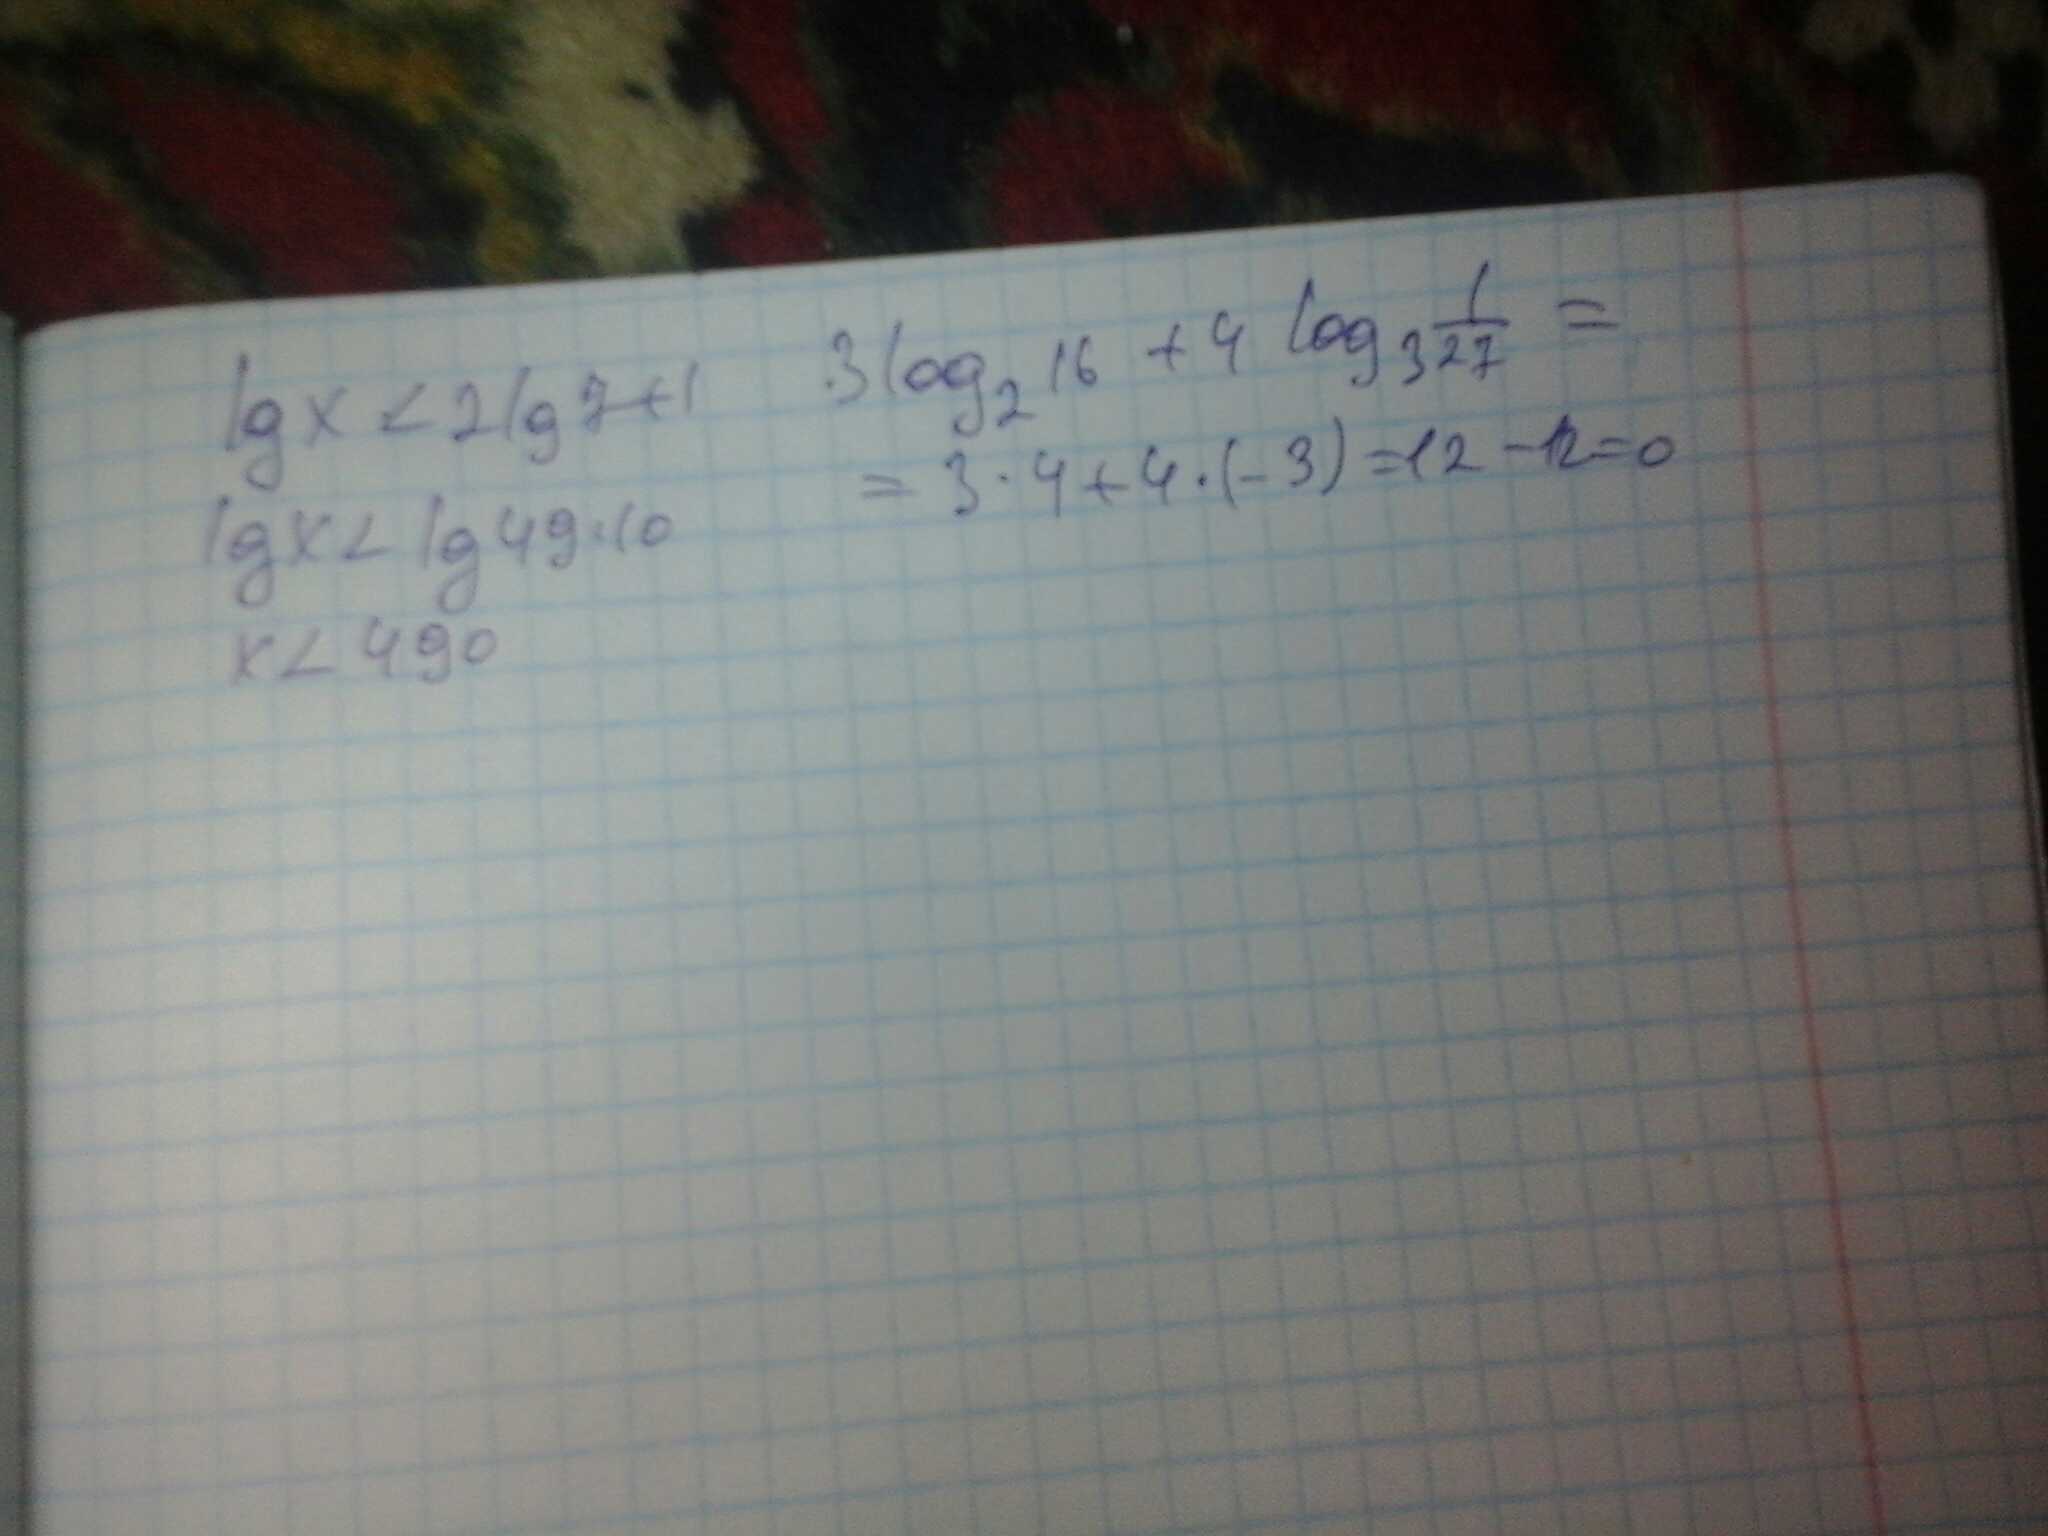 lg x < 2 lg 7 + 1
lg x < lg 49 · 10
x < 490
3 log₂ 16 + 4 log₃ 1/27 =
= 3 · 4 + 4 · (-3) = 12 - 12 = 0